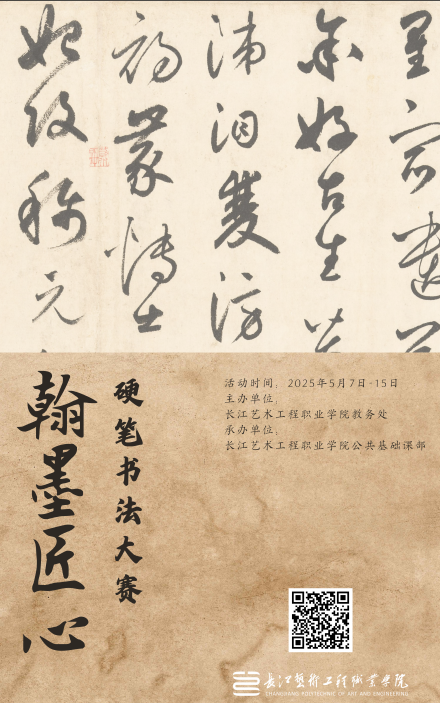 余好古生
泪雙滂
蒙博士
翰墨匠心
硬笔书法大赛
活动时间：2025年5月7日-15日
主办单位：
长江艺术工程职业学院教务处
承办单位：
长江艺术工程职业学院公共基础课部
長江藝術工程職業學院
CHANGJIANG POLYTECHNIC OF ART AND ENGINEERING